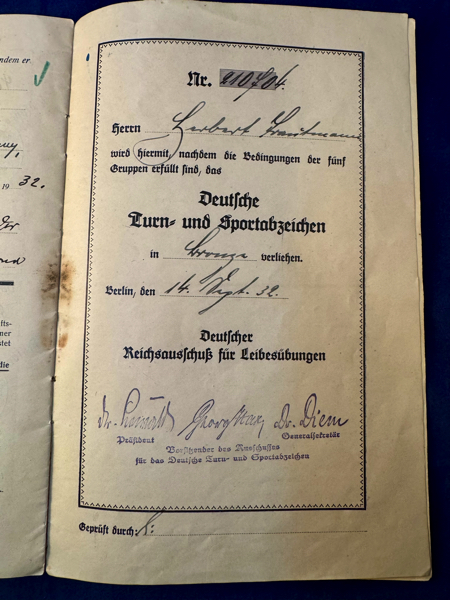 ndem er
19 32.
Nr. 210704.
Herrn Herbert Trautmann
wird hiermit, nachdem die Bedingungen der fünf
Gruppen erfüllt sind, das
Deutsche
Turn- und Sportabzeichen
in Bronze verliehen.
Berlin, den 14. Sept. 32.
Deutscher
Reichsausschuß für Leibesübungen
Dr. Lewald Georg Hax, Dr. Diem
Präsident Generalsekretär
Vorsitzender des Ausschusses
für das Deutsche Turn- und Sportabzeichen
Geprüft durch: